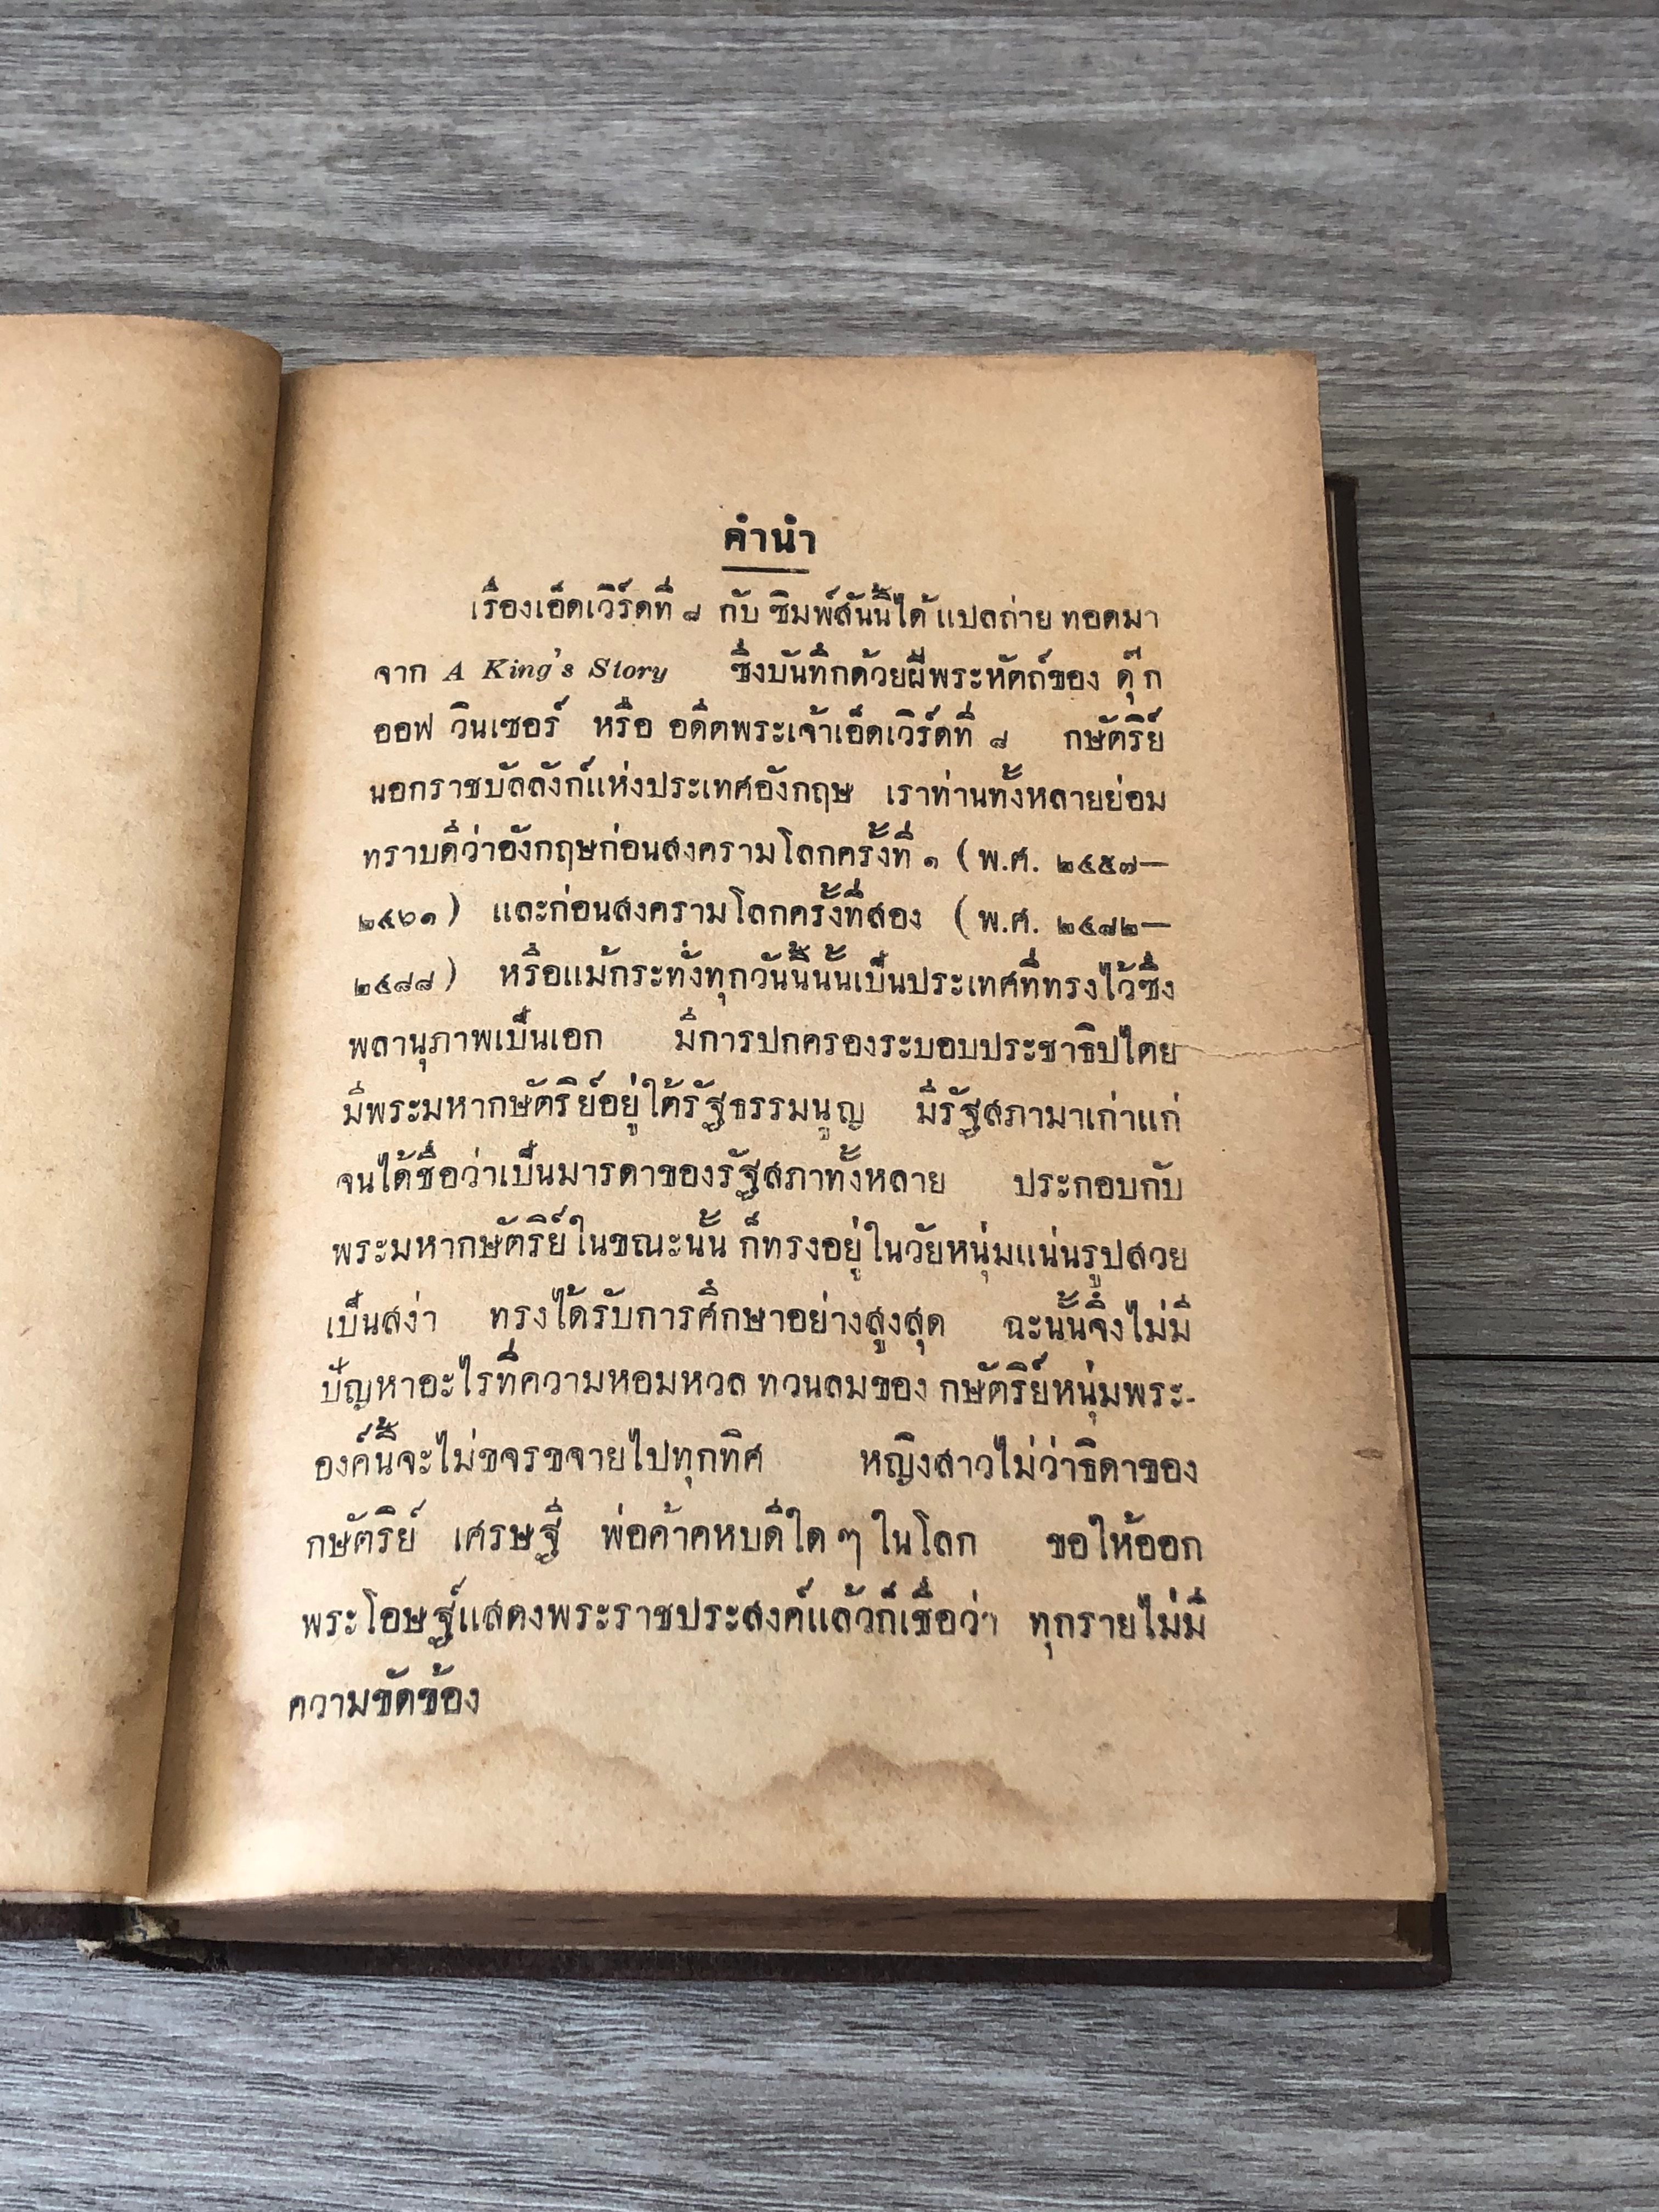 คำนำ
เรื่องเอ็ดเวิร์ดที่ ๘ กับ ซิมพ์สันนี้ได้ แปลถ่าย ทอดมา
จาก A King's Story ซึ่งบันทึกด้วยฝีพระหัตถ์ของ ดุ๊ก
ออฟ วินเซอร์ หรือ อดีตพระเจ้าเอ็ดเวิร์ดที่ ๘ กษัตริย์
นอกราชบัลลังก์แห่งประเทศอังกฤษ เราท่านทั้งหลายย่อม
ทราบดีว่าอังกฤษก่อนสงครามโลกครั้งที่ ๑ (พ.ศ. ๒๔๕๗—
๒๔๖๑) และก่อนสงครามโลกครั้งที่สอง (พ.ศ. ๒๔๘๒—
๒๔๘๘) หรือแม้กระทั่งทุกวันนี้นั้นเป็นประเทศที่ทรงไว้ซึ่ง
พลานุภาพเป็นเอก มีการปกครองระบอบประชาธิปไตย
มีพระมหากษัตริย์อยู่ใต้รัฐธรรมนูญ มีรัฐสภามาเก่าแก่
จนได้ชื่อว่าเป็นมารดาของรัฐสภาทั้งหลาย ประกอบกับ
พระมหากษัตริย์ในขณะนั้น ก็ทรงอยู่ในวัยหนุ่มแน่นรูปสวย
เป็นสง่า ทรงได้รับการศึกษาอย่างสูงสุด ฉะนั้นจึงไม่มี
ปัญหาอะไรที่ความหอมหวล ทวนลมของ กษัตริย์หนุ่มพระ-
องค์นี้จะไม่ขจรขจายไปทุกทิศ หญิงสาวไม่ว่าธิดาของ
กษัตริย์ เศรษฐี พ่อค้าคหบดีใด ๆ ในโลก ขอให้ออก
พระโอษฐ์แสดงพระราชประสงค์แล้วก็เชื่อว่า ทุกรายไม่มี
ความขัดข้อง